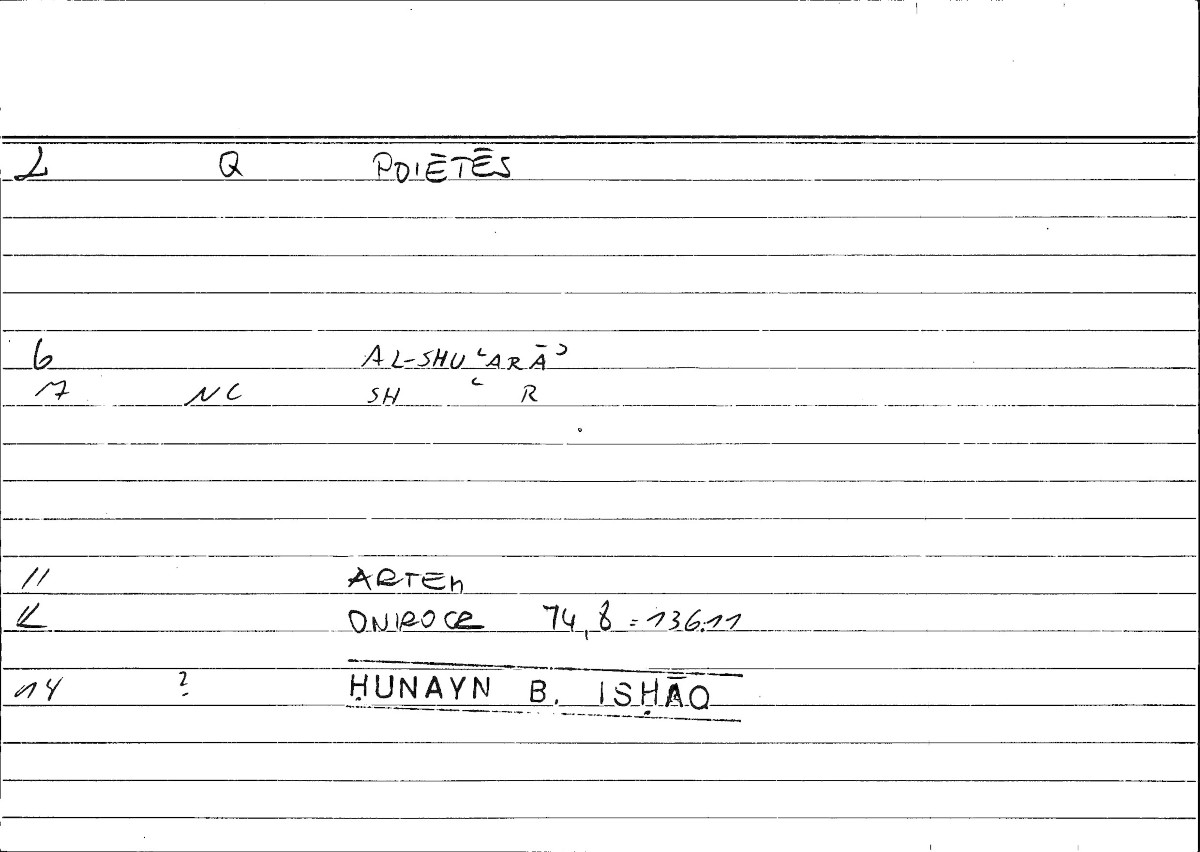 2 Q POIĒTĒS
6 AL-SHUʿARĀʾ
7 NC SH ʿ R
11 ARTEM
12 ONIROCR 74,8=136.11
14 ? ḤUNAYN B. ISḤĀQ